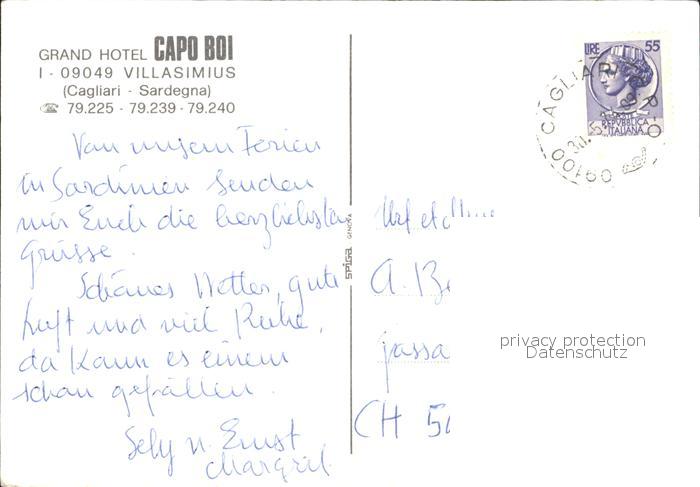 GRAND HOTEL CAPO BOI
I - 09049 VILLASIMIUS
(Cagliari - Sardegna)
☎ 79.225 - 79.239 - 79.240
Von unsern Ferien
in Sardinien senden
wir Euch die herzlichsten
Grüsse.
Schönes Wetter, gute
Luft und viel Ruhe,
da kann es einem
schon gefallen.
u. Ernst
Margrit
SPIGA GENOVA
LIRE 55
REPUBBLICA
ITALIANA
CAGLIARI
09100
A. Be
passa
CH 50
privacy protection
Datenschutz